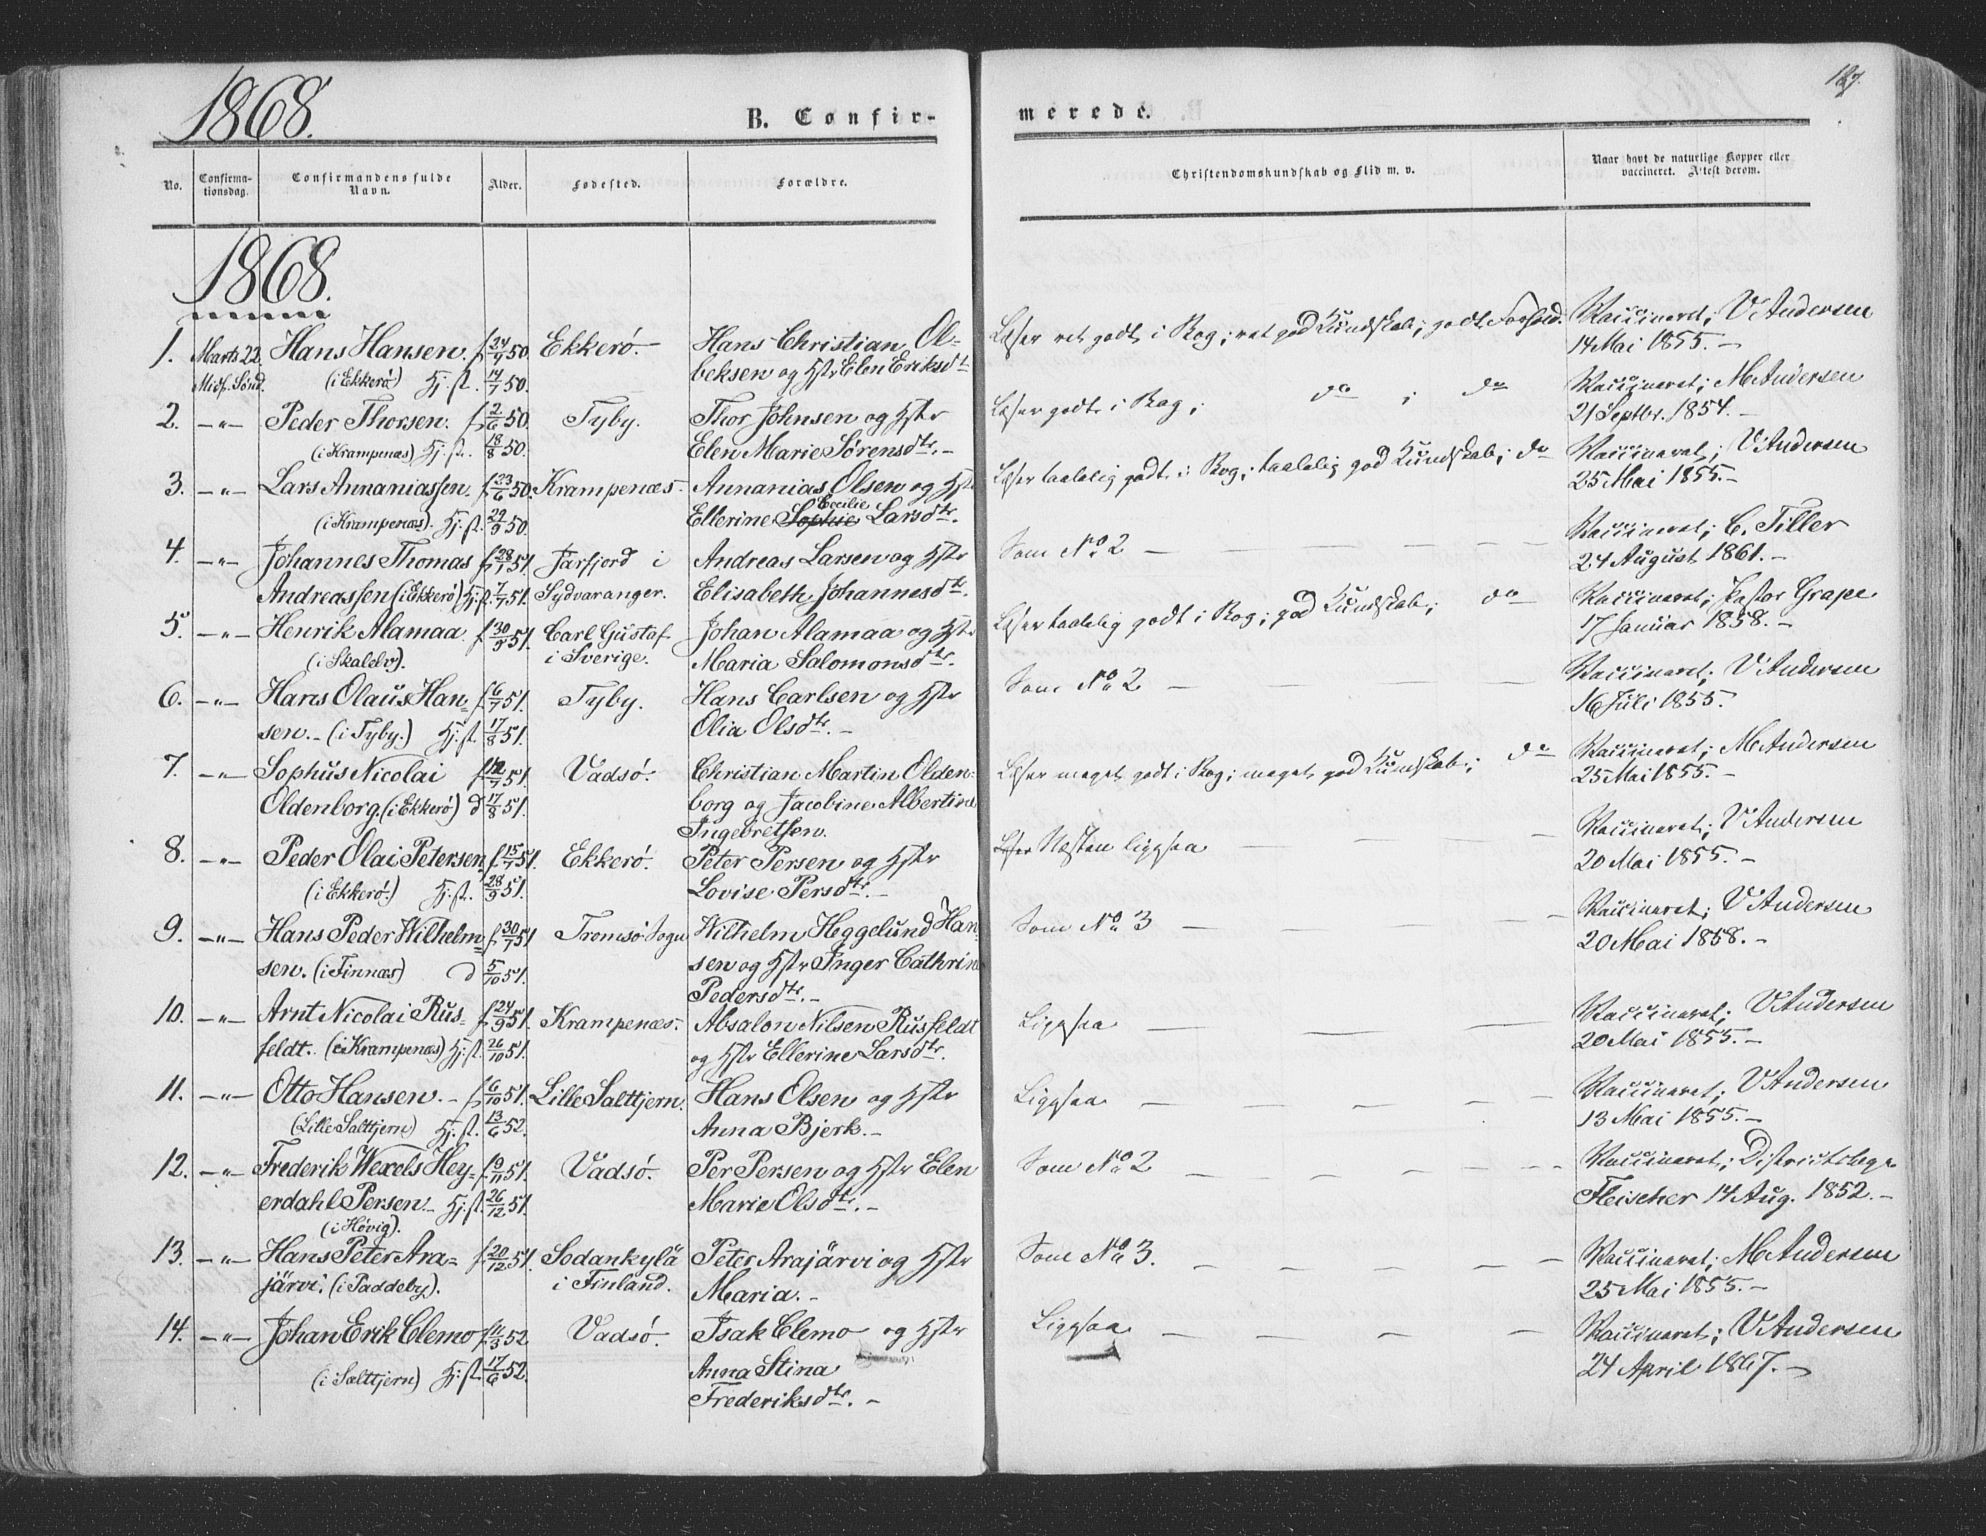 1868.
B. Confir-
merede.
127.
No.
Confirma-
tionsdag.
Confirmandens fulde
Navn.
Alder.
Fødested.
Forældre.
Christendomskundskab og Flid m. v.
Naar havt de naturlige Kopper eller
vaccineret. Attest derom.
1868.
1. Marts 22 Hans Hansen. f. 24/9 50. Ekkerö. Hans Christian Ol- Læser ret godt i Bog; ret god Kundskab; godt Forhold. Vaccineret; V. Andersen
Midf. Sönd. (i Ekkerö) Hj. st. 14/7 50. beksen og Hstr Elen Eriksdtr 14 Mai 1855. -
2. -"- Peder Thorsen. f. 2/6 50. Tyby. Thor Johnsen og Hstr Læser godt i Bog; do ; do Vaccineret; M. Andersen
(i Krampenæs) Hj. st. 18/8 50. Elen Marie Sörensdtr. - 21 Septbr. 1854. -
3. -"- Lars Annaniassen. f. 23/6 50. Krampenæs. Annanias Olsen og Hstr Læser taalelig godt i Bog; taalelig god Kundskab; do Vaccineret; V. Andersen
(i Krampenæs). Hj. st. 29/9 50. Ellerine Sophie Cecilie Larsdtr. 25 Mai 1855. -
4. -"- Johannes Thomas f. 28/1 51. Jarfjord i Andreas Larsen og Hstr Som No 2 Vaccineret; C. Tiller
Andreassen (i Ekkerö) Hj. st. 7/7 51. Sydvaranger. Elisabeth Johannesdtr. 24 August 1861. -
5. -"- Henrik Alamaa. f. 30/3 51. Carl Gustaf Johan Alamaa og Hstr Læser taalelig godt i Bog; god Kundskab; do Vaccineret; Pastor Grape
(i Skalelv). i Sverige. Maria Salomonsdtr. 17 Januar 1858. -
6. -"- Hans Olaus Han- f. 6/7 51. Tyby. Hans Carlsen og Hstr Som No 2 Vaccineret; V. Andersen
sen. - (i Tyby.) Hj. st. 17/8 51. Olia Olsdtr. - 16 Juli 1855.
7. -"- Sophus Nicolai f. 12/7 51. Vadsö. Christian Martin Olden- Læser meget godt i Bog; meget god Kundskab; do Vaccineret; M. Andersen
Oldenborg. (i Ekkerö) d 17/8 51. borg og Jacobine Albertine 25 Mai 1855. -
Ingebretsen.
8. -"- Peder Olai Petersen. f. 15/7 51. Ekkerö. Peter Persen og Hstr Næsten ligesaa Vaccineret; V. Andersen
(i Ekkerö.) Hj. st. 28/9 51. Lovise Persdtr. - 20 Mai 1855. -
9. -"- Hans Peder Wilhelm- f. 30/7 51. Tromsö Sogn Wilhelm Heggelund Han- Som No 3 Vaccineret; V. Andersen
sen. (i Finnæs) d 5/10 51. sen og Hstr Inger Cathrine 20 Mai 1858. -
Pedersdtr. -
10. -"- Arnt Nicolai Rus- f. 24/9 51. Krampenæs. Absalon Nilsen Rusfeldt Ligesaa Vaccineret; V. Andersen
feldt. (i Krampenæs) Hj. st. 26/10 51. og Hstr Ellerine Larsdtr. 20 Mai 1855. -
11. -"- Otto Hansen. - f. 6/10 51. Lille Salttjern. Hans Olsen og Hstr Ligesaa Vaccineret; V. Andersen
(Lille Salttjern) Hj. st. 13/6 52. Anna Bjerk. - 13 Mai 1855. -
12. -"- Frederik Wexels Hey- f. 9/11 51. Vadsö. Per Persen og Hstr Elen Som No 2 Vaccineret; Districtslæge
erdahl Persen. - Hj. st. 26/12 51. Marie Olsdtr. - Fleischer 14 Aug. 1852. -
(i Høvig).
13. -"- Hans Peter Ara- f. 20/12 51. Sodankylä Peter Arajärvi og Hstr Som No 3. Vaccineret; M. Andersen
järvi. (i Paddeby). i Finland. Maria. - 25 Mai 1855. -
14. -"- Johan Erik Clemo f. 11/3 52 Vadsö. Isak Clemo og Hstr Ligesaa Vaccineret; V. Andersen
(i Salttjern) Hj. st. 17/6 52. Anna Stina 24 April 1867. -
Frederiksdtr. -